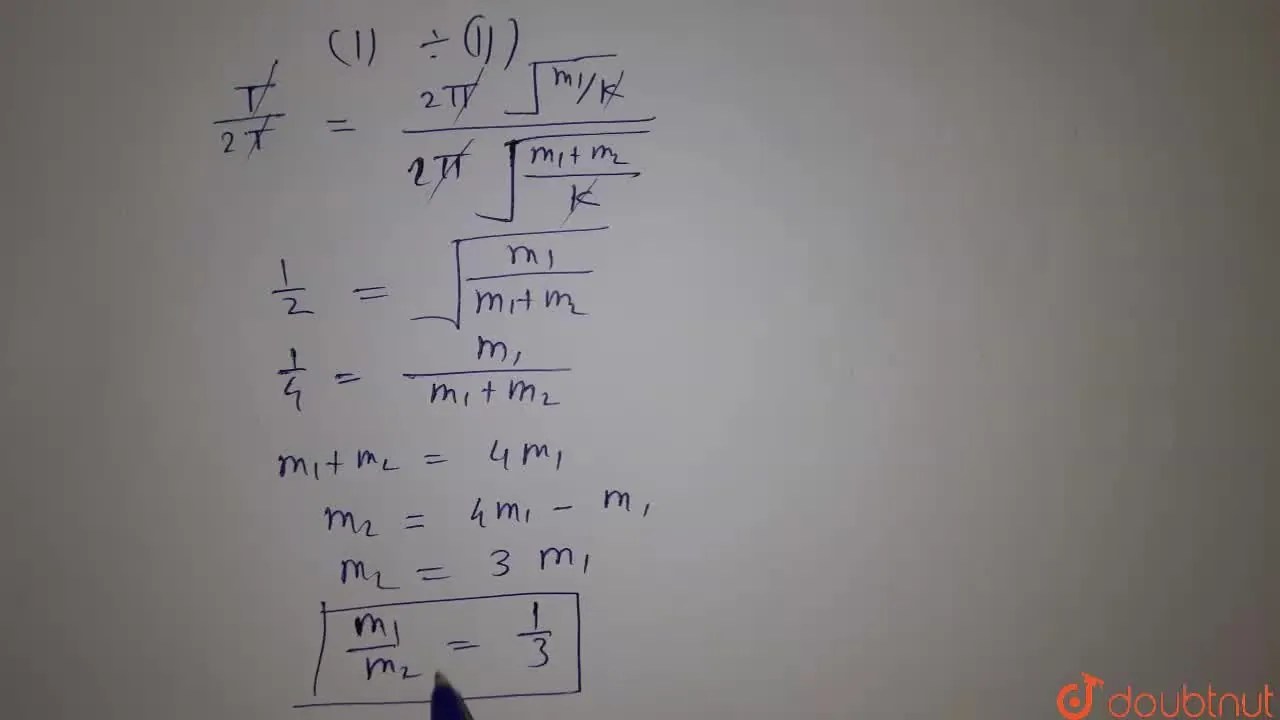 (I) ÷ (II)
T/2T = 2π √(m₁/K) / 2π √((m₁+m₂)/K)
1/2 = √(m₁/(m₁+m₂))
1/4 = m₁/(m₁+m₂)
m₁+m₂ = 4m₁
m₂ = 4m₁ - m₁
m₂ = 3 m₁
m₁/m₂ = 1/3
doubtnut